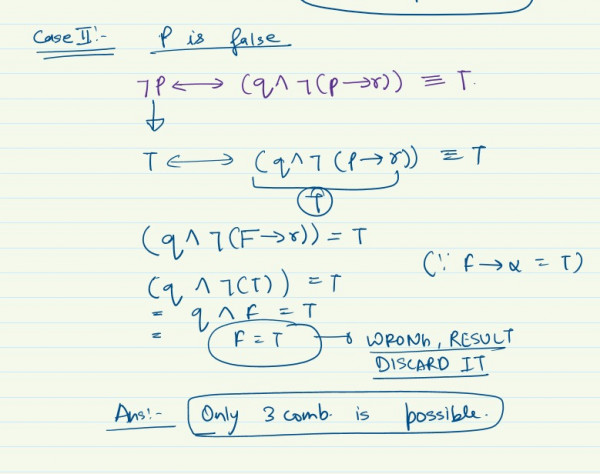 Case II :- P is false
¬P ⟷ (q ∧ ¬(p → r)) ≡ T.
T ⟷ (q ∧ ¬(p → r)) ≡ T
T
(q ∧ ¬(F → r)) = T
(q ∧ ¬(T)) = T (∵ F → α = T)
= q ∧ F = T
= F = T → WRONG, RESULT
DISCARD IT
Ans:- Only 3 comb. is possible.